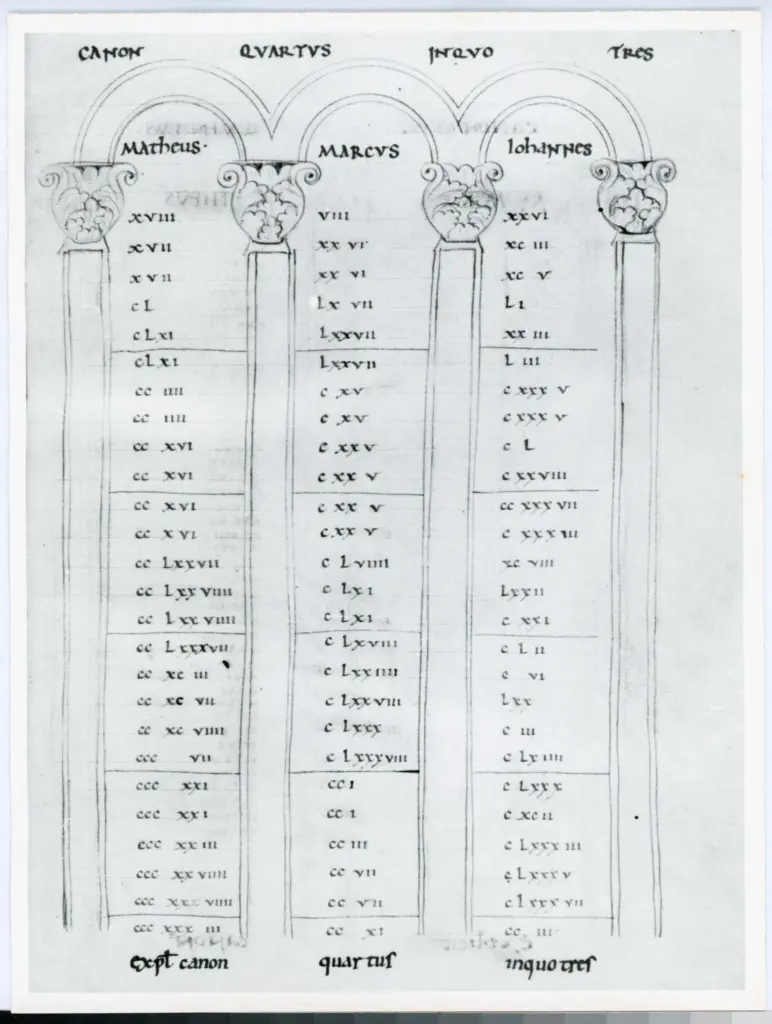 CANON QVARTVS INQVO TRES
MATheUS· MARCVS IohANNES
xviii viii xxvi
xvii xx vi xc iii
xvii xx vi xc v
c L Lx vii Li
c Lxi Lxxvii xx iii
cLxi Lxxvii L iii
cc iiii c xv c xxx v
cc iiii c xv c xxx v
cc xvi c xxv c L
cc xvi c xx v c xxviiii
cc xvi c xx v cc xxx vii
cc xvi c.xx v c xxx iii
cc Lxxvii c Lviiii xc viii
cc Lxxviiii c Lxi Lxxii
cc Lxxviiii c Lxi c xxi
cc Lxxxvii c Lxviii c L ii
cc xc iii c Lxxiiii c vi
cc xc vii c Lxxviii Lxx
cc xc viiii c Lxxx c iii
ccc vii c Lxxxviii c Lxiiii
ccc xxi cc i c Lxxx
ccc xxi cc i c xcii
ccc xxiii cc iii c Lxxx iii
ccc xxviiii cc vii c Lxxx v
ccc xxviiii cc vii c lxxx vii
ccc xxx iii cc xi cc iii·
expł canon quartus inquo tres